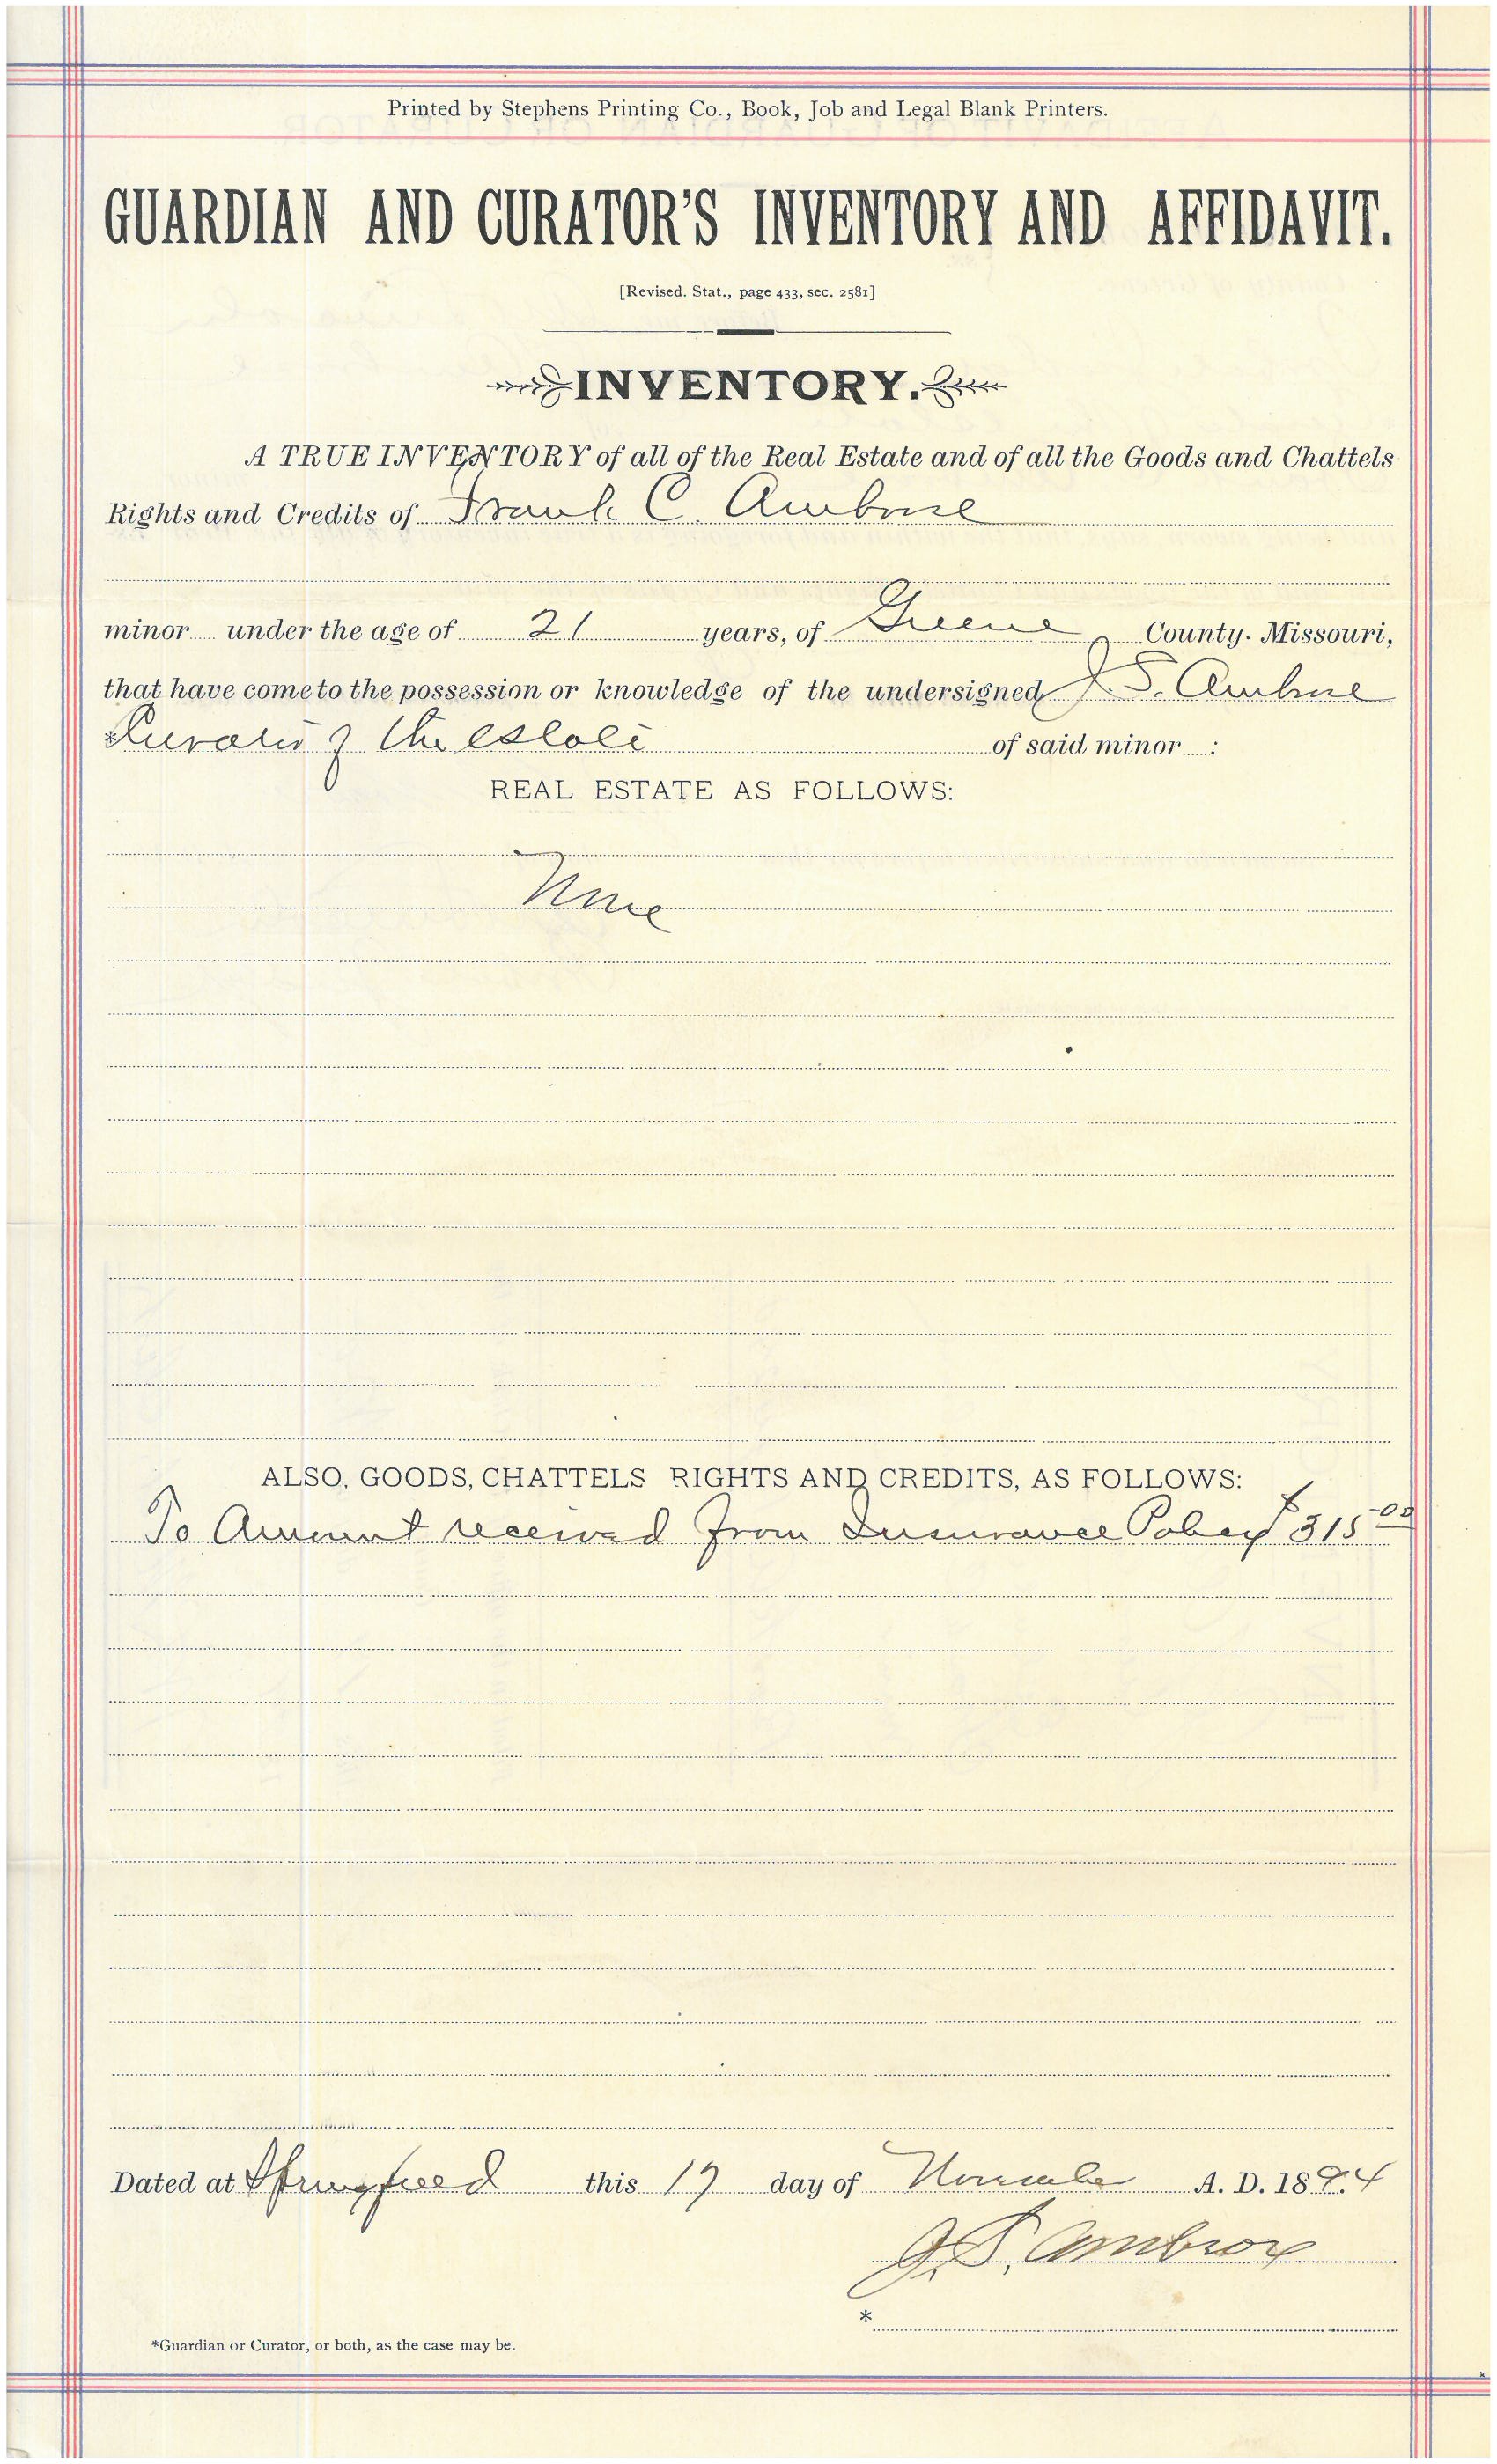 Printed by Stephens Printing Co., Book, Job and Legal Blank Printers.
GUARDIAN AND CURATOR'S INVENTORY AND AFFIDAVIT.
[Revised. Stat., page 433, sec. 2581]
INVENTORY.
A TRUE INVENTORY of all of the Real Estate and of all the Goods and Chattels
Rights and Credits of Frank C. Ambrose
minor under the age of 21 years, of Greene County. Missouri,
that have come to the possession or knowledge of the undersigned J. S. Ambrose
*Curator of the estate of said minor :
REAL ESTATE AS FOLLOWS:
None
ALSO, GOODS, CHATTELS RIGHTS AND CREDITS, AS FOLLOWS:
To Amount received from Insurance Policy $315.00
Dated at Springfield this 19 day of November A. D. 1894
J. S. Ambrose
*
*Guardian or Curator, or both, as the case may be.